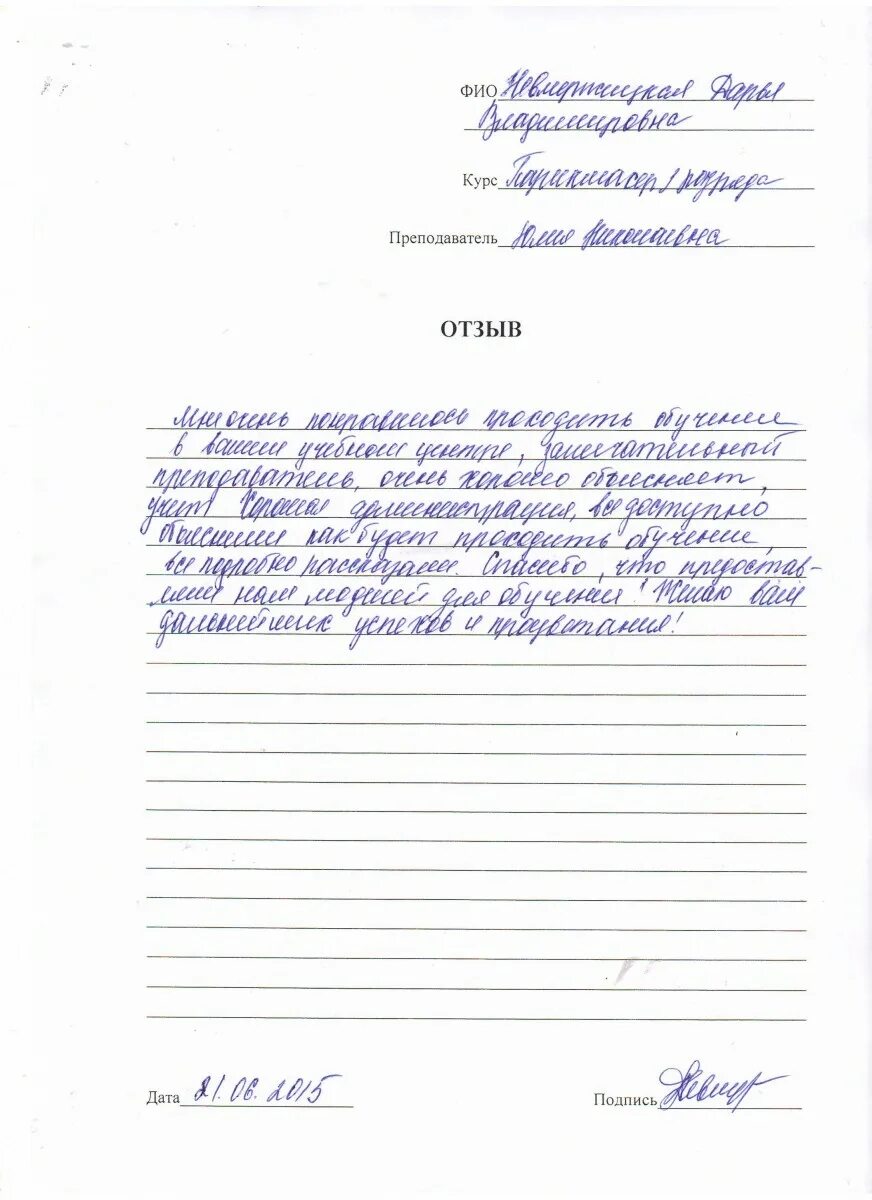 ФИО Невмержицкая Дарья
Владимировна
Курс Парикмахер 1 разряда
Преподаватель Юлия Николаевна
ОТЗЫВ
Мне очень понравилось проходить обучение
в вашем учебном центре, замечательный
преподаватель, очень хорошо объясняет,
учит. Хорошая администрация, все доступно
объяснили как будет проходить обучение,
все подробно рассказали. Спасибо, что предостав-
или нам моделей для обучения! Желаю вам
дальнейших успехов и процветания!
Дата 21.06.2015
Подпись Невмер